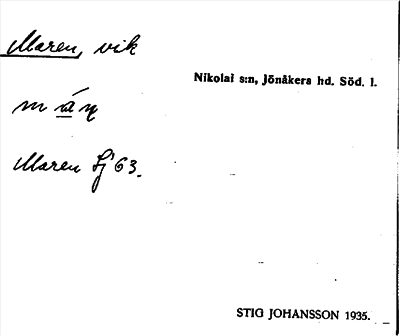 Maren, vik
Nikolai s:n, Jönåkers hd. Söd. l.
Maren Lj 63.
STIG JOHANSSON 1935.